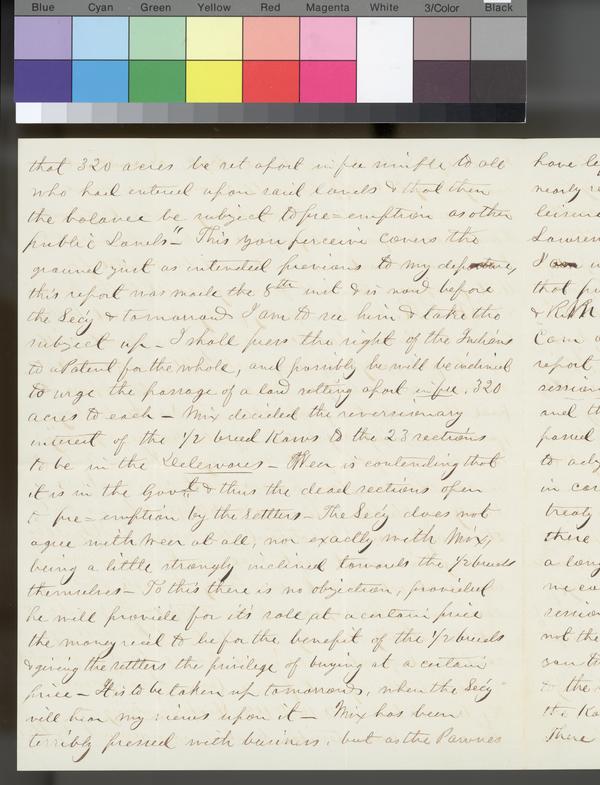 Blue Cyan Green Yellow Red Magenta White 3/Color Black
that 320 acres be set apart in fee simple to all
who had entered upon said lands & that then
the balance be subject to pre=emption as other
public Lands"– This you perceive covers the
ground just as intended previous to my departure,
this report was made the 8th inst & is now before
the Secy & tomorrow I am to see him & take the
subject up – I shall press the right of the Indians
to a Patent for the whole, and possibly he will be inclined
to urge the passage of a law setting apart in fee, 320
acres to each – Mix decided the reversionary
interest of the 1/2 breed Kaws to the 23 sections
to be in the Delewares – Weer is contending that
it is in the Govt. & thus the dead sections open
to pre=emption by the Settlers – The Secy does not
agree with Weer at all, nor exactly with Mix,
being a little strongly inclined towards the 1/2 breeds
themselves – To this there is no objection, provided
he will provide for it's sale at a certain price
the money rec'd to be for the benefit of the 1/2 breeds
& giving the settlers the privilege of buying at a certain
price – It is to be taken up tomorrow, when the Secy
will hear my views upon it – Mix has been
terribly pressed with business, but as the Pawnees
have
nearly
leisure
Lawren
I
that
&
Cam
report
session
and th
passed
to
in
treaty
there
a long
we ca
session
not the
you
to the
the Ka
There